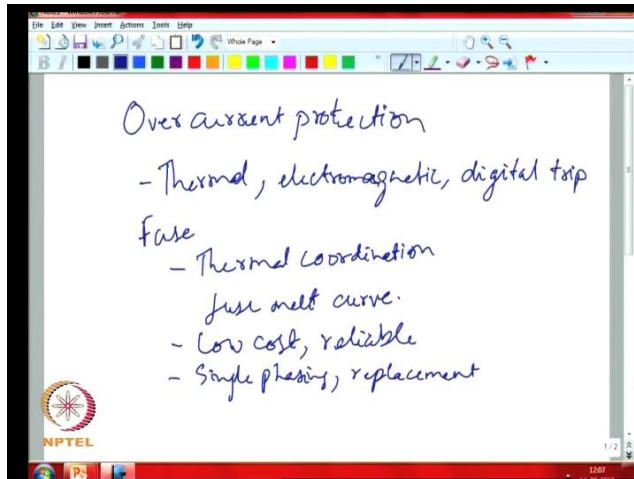 File Edit View Insert Actions Tools Help
Whole Page
Over current protection
- Thermal, electromagnetic, digital trip
Fuse
- Thermal coordination
fuse melt curve.
- Low cost, reliable
- Single phasing, replacement
NPTEL
1/2
12:07